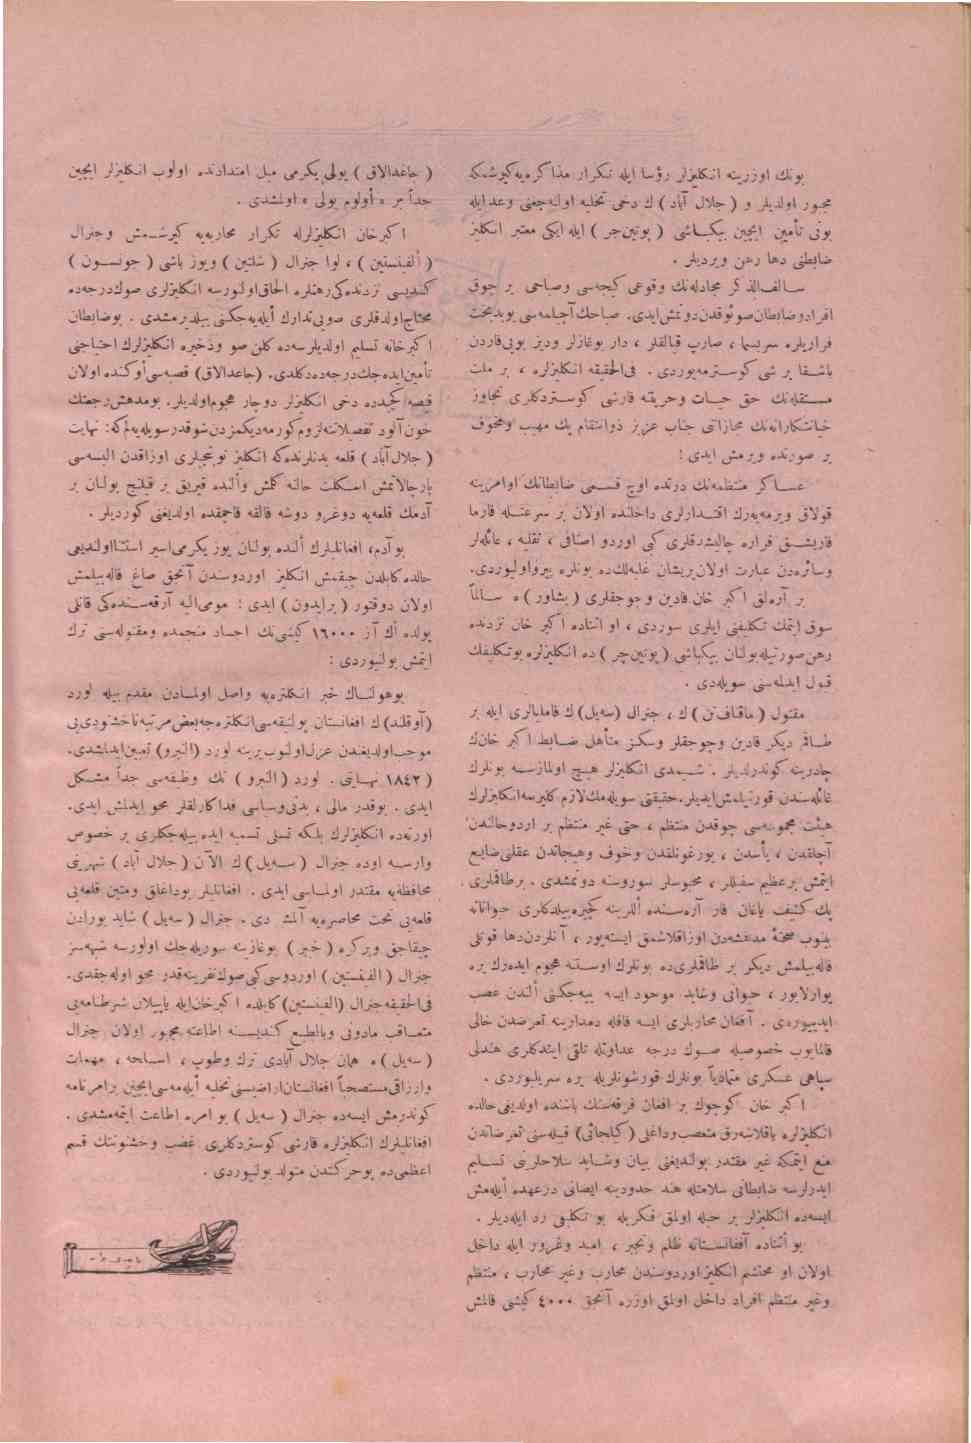 بونك اوزرينه انكليزلر رؤسا ايله تكرار مذاكره‌يه كيرشمكه
مجبور اولديلر و ( جلال آباد ) ك دخى تخليه اولنه‌جغنى وعد ايله
بونى تأمين ايچين بيكباشى ( پوتين‌جر ) ايله ايكى معتبر انكليز
ضابطنى دها رهن ويرديلر .
سالف‌الذكر مجادله‌نك وقوعى كيجه‌سى وصباحى بر چوق
افراد و ضابطان صوئوقدن دونمش‌ايدى. صباحك آچيلمه‌سى بو بدبخت
فراريلره سرپيما ، صارپ قيالقلر ، دار بوغازلر وديز بويى قاردن
باشقا بر شى كوسترمه‌يوردى . فى‌الحقيقه انكليزلره ، بر ملت
مستقله‌نك حق حيات وحريتنه قارشى كوستردكلرى تجاوز
خيانتكارانه‌نك مجازاتنى جناب عزيز ذوانتقام پك مهيب ومخوف
بر صورتده ويرمش ايدى !
عساكر منتظمه‌نك درتده اوچ قسمى ضابطانك اوامرينه
قولاق ويرمه‌يه‌رك اقتدارلرى داخلنده اولان بر سرعتله قارما
قاريشق فراره چاليشدقلرى كبى اوردو اصنافى ، نقليه ، عائله‌لر
وسائره‌دن عبارت اولان پريشان غلبه‌لك‌ده بونلره پيرو اوليوردى.
بر آره‌لق اكبر خان قادين و چوجقلرى ( پشاور ) ه سالماً
سوق ايتمك تكليفنى ايلرى سوردى ، او اثناده اكبر خان نزدنده
رهن صورتيله بولنان بيكباشى ( پوتين‌چر ) ده انكليزلره بو تكليفك
قبول ايدلمه‌سنى سويله‌دى .
مقتول ( ماقناف‌تن ) ك ، جنرال ( سه‌يل ) ك فاميليالرى ايله بر
طاقم ديكر قادين وچوجقلر وسكز متأهل ضابط اكبر خان‌ك
چادرينه كوندرلديلر . شيمدى انكليزلر هيچ اولمازسه بونلرك
غائله‌سندن قورتيلمش‌ايديلر. حقيقتى سويله‌مك لازم كليرسه انكليزلرك
هيئت مجموعه‌سى چوقدن منتظم ، حتى غير منتظم بر اردو حالندن
آچلقدن ، يأسدن ، يورغونلقدن وخوف وهيجاندن عقلنى ضايع
ايتمش بر عظيم سفيللر ، محبوسلر سوروسنه دونمشدى . بر طاقملرى
پك كثيف ياغان قار آره‌سنده أللرينه كچيره‌بيلدكلرى حيواناته
بينوب صحنۀ مدهشه‌دن اوزاقلاشمق ايسته‌يور ، آنلردن دها قوتلى
قاله‌بيلمش ديكر بر طاقملرى‌ده بونلرك اوستنه هجوم ايده‌رك يره
يوارلايور ، حيوانى وشايد موجود ايسه ييه‌جكنى ألندن غصب
ايدييوردى . آفغان محاربلرى ايسه قافله دمدارينه تعرضدن خالى
قالمايوب خصوصيله صوك درجه عداوتله تلقى ايتدكلرى هندلى
سپاهى عسكرى متمادياً بونلرك قورشونلريله يره سريليوردى .
اكبر خان كوچوك بر افغان فرقه‌سنك باشنده اولديغى حالده
انكليزلره ياقلاشه‌رق متعصب وداغلى ( كيلجائى ) قبيله‌سنى تعرضاتدن
منع ايتمكه غير مقتدر بولنديغنى بيان وشايد سلاحلرينى تسليم
ايدرلرسه ضابطانى سلامتله هند حدودينه ايصالى درعهده ايله‌مش
ايسه‌ده انكليزلر بر حيله اولمق فكريله بو تكليفى رد ايله‌ديلر .
بو اثناده آففانستانه ظلم وتجبر ، اميد وغرور ايله داخل
اولان او محتشم انكليز اوردوسندن محارب وغير محارب ، منتظم
وغير منتظم افراد داخل اولمق اوزره آنجق ٤٠٠٠ كيشى قالمش
( جاغدالاق ) يولى يكرمى ميل امتدادنده اولوب انكليزلر ايچين
جداً بر « أولوم يولى » اولمشدى .
اكبر خان انكليزلرله تكرار محاربه‌يه كيرشمش وجنرال
( ألفينستين ) ، لوا جنرال ( شلتين ) ويوز باشى ( جونسون )
كنديسى نزدنده‌كى رهنلره الحاق اولنورسه انكليزلرى صوك درجه‌ده
محتاج اولدقلرى صويى تدارك أيله‌يه‌جكنى بيلديرمشدى . بو ضابطان
اكبر خانه تسليم اولديلرسه‌ده كلن صو وذخيره انكليزلرك احتياجنى
تأمين ايده‌جك درجه‌ده دكلدى. (جاغدالاق) قصبه‌سى أوكنده اولان
قيصه كچيدده دخى انكليزلر دوچار هجوم اولديلر. بو مدهش رجعتك
خون‌آلود تفصيلاتنه لزوم كورمه‌ديكمزدن شوقدر سويله‌يه‌لم كه: نهايت
( جلال آباد ) قلعه بدنلرنده‌كى انكليز نوبتجيلرى اوزاقدن البسه‌سى
پارچالانمش اسكلت حالنه كلمش وألنده قيريق بر قيلنج بولنان بر
آدمك قلعه‌يه دوغرو دوشه قالقه قاچمقده اولديغنى كورديلر .
بو آدم، افغانليلرك ألنده بولنان يوز يكرمى اسير استثنا اولنديغى
حالده كابلدن چيقمش انكليز اوردوسندن آنجق صاغ قاله‌بيلمش
اولان دوقتور ( برايدون ) ايدى : مومى‌اليه آرقه‌سنده‌كى قانلى
يولده أك آز ١٦٠٠٠ كيشى‌نك اجساد منجمده ومقتوله‌سنى ترك
ايتمش بولنيوردى :
بو هولناك خبر انكلتره‌يه واصل اولمادن مقدم بيله لورد
( أوقلند ) ك افغانستان پولتيقه‌سى انكلتره‌جه بعض مرتبه ناخشنودى‌يى
موجب اولديغندن عزل اولنوب يرينه لورد ( النبرو ) تعيين ايدلمشدى.
( ١٨٤٢ نهايتى . لورد ( النبرو ) نك وظيفه‌سى جداً مشكل
ايدى . بوقدر مالى ، بدنى وسياسى فداكارلقلر محو ايدلمش ايدى.
اورته‌ده انكليزلرك بلكه تسلى تسميه ايده بيله‌جكلرى بر خصوص
وارسه اوده جنرال ( سه‌يل ) ك الآن ( جلال آباد ) شهرينى
محافظه‌يه مقتدر اولماسى ايدى . افغانليلر بو داغلق ومتين قلعه‌يى
قلعه‌يى تحت محاصره‌يه آلمشدى . جنرال ( سه‌يل ) شايد بورادن
چيقاجق ويركره ( خيبر ) بوغازينه سوريله‌جك اولورسه شبهه‌سز
جنرال ( الفنستين ) اوردوسى كبى صوك نفرينه قدر محو اوله‌جقدى.
فى‌الحقيقه جنرال (الفنستين) كابلده اكبر خان ايله ياپيلان شرطنامه‌يى
متعاقب مادونى وبالطبع كنديسنه اطاعته مجبور اولان جنرال
( سه‌يل ) ه همان جلال آبادى ترك وطوپ ، اسلحه ، مهمات
وارزاقى مستصحباً افغانستان اراضيسنى تخليه أيله‌مه‌سى ايچين بر امرنامه
كوندرمش ايسه‌ده جنرال ( سه‌يل ) بو امره اطاعت ايتمه‌مشدى .
افغانليلرك انكليزلره قارشى كوستردكلرى غضب وخشونتك قسم
اعظمى‌ده بو حركتدن متولد بولنيوردى .